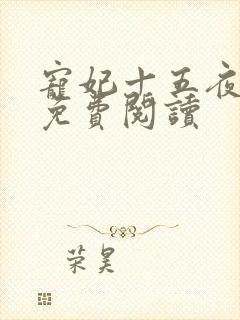 寵妃十五夜
免費閱讀
荣昊